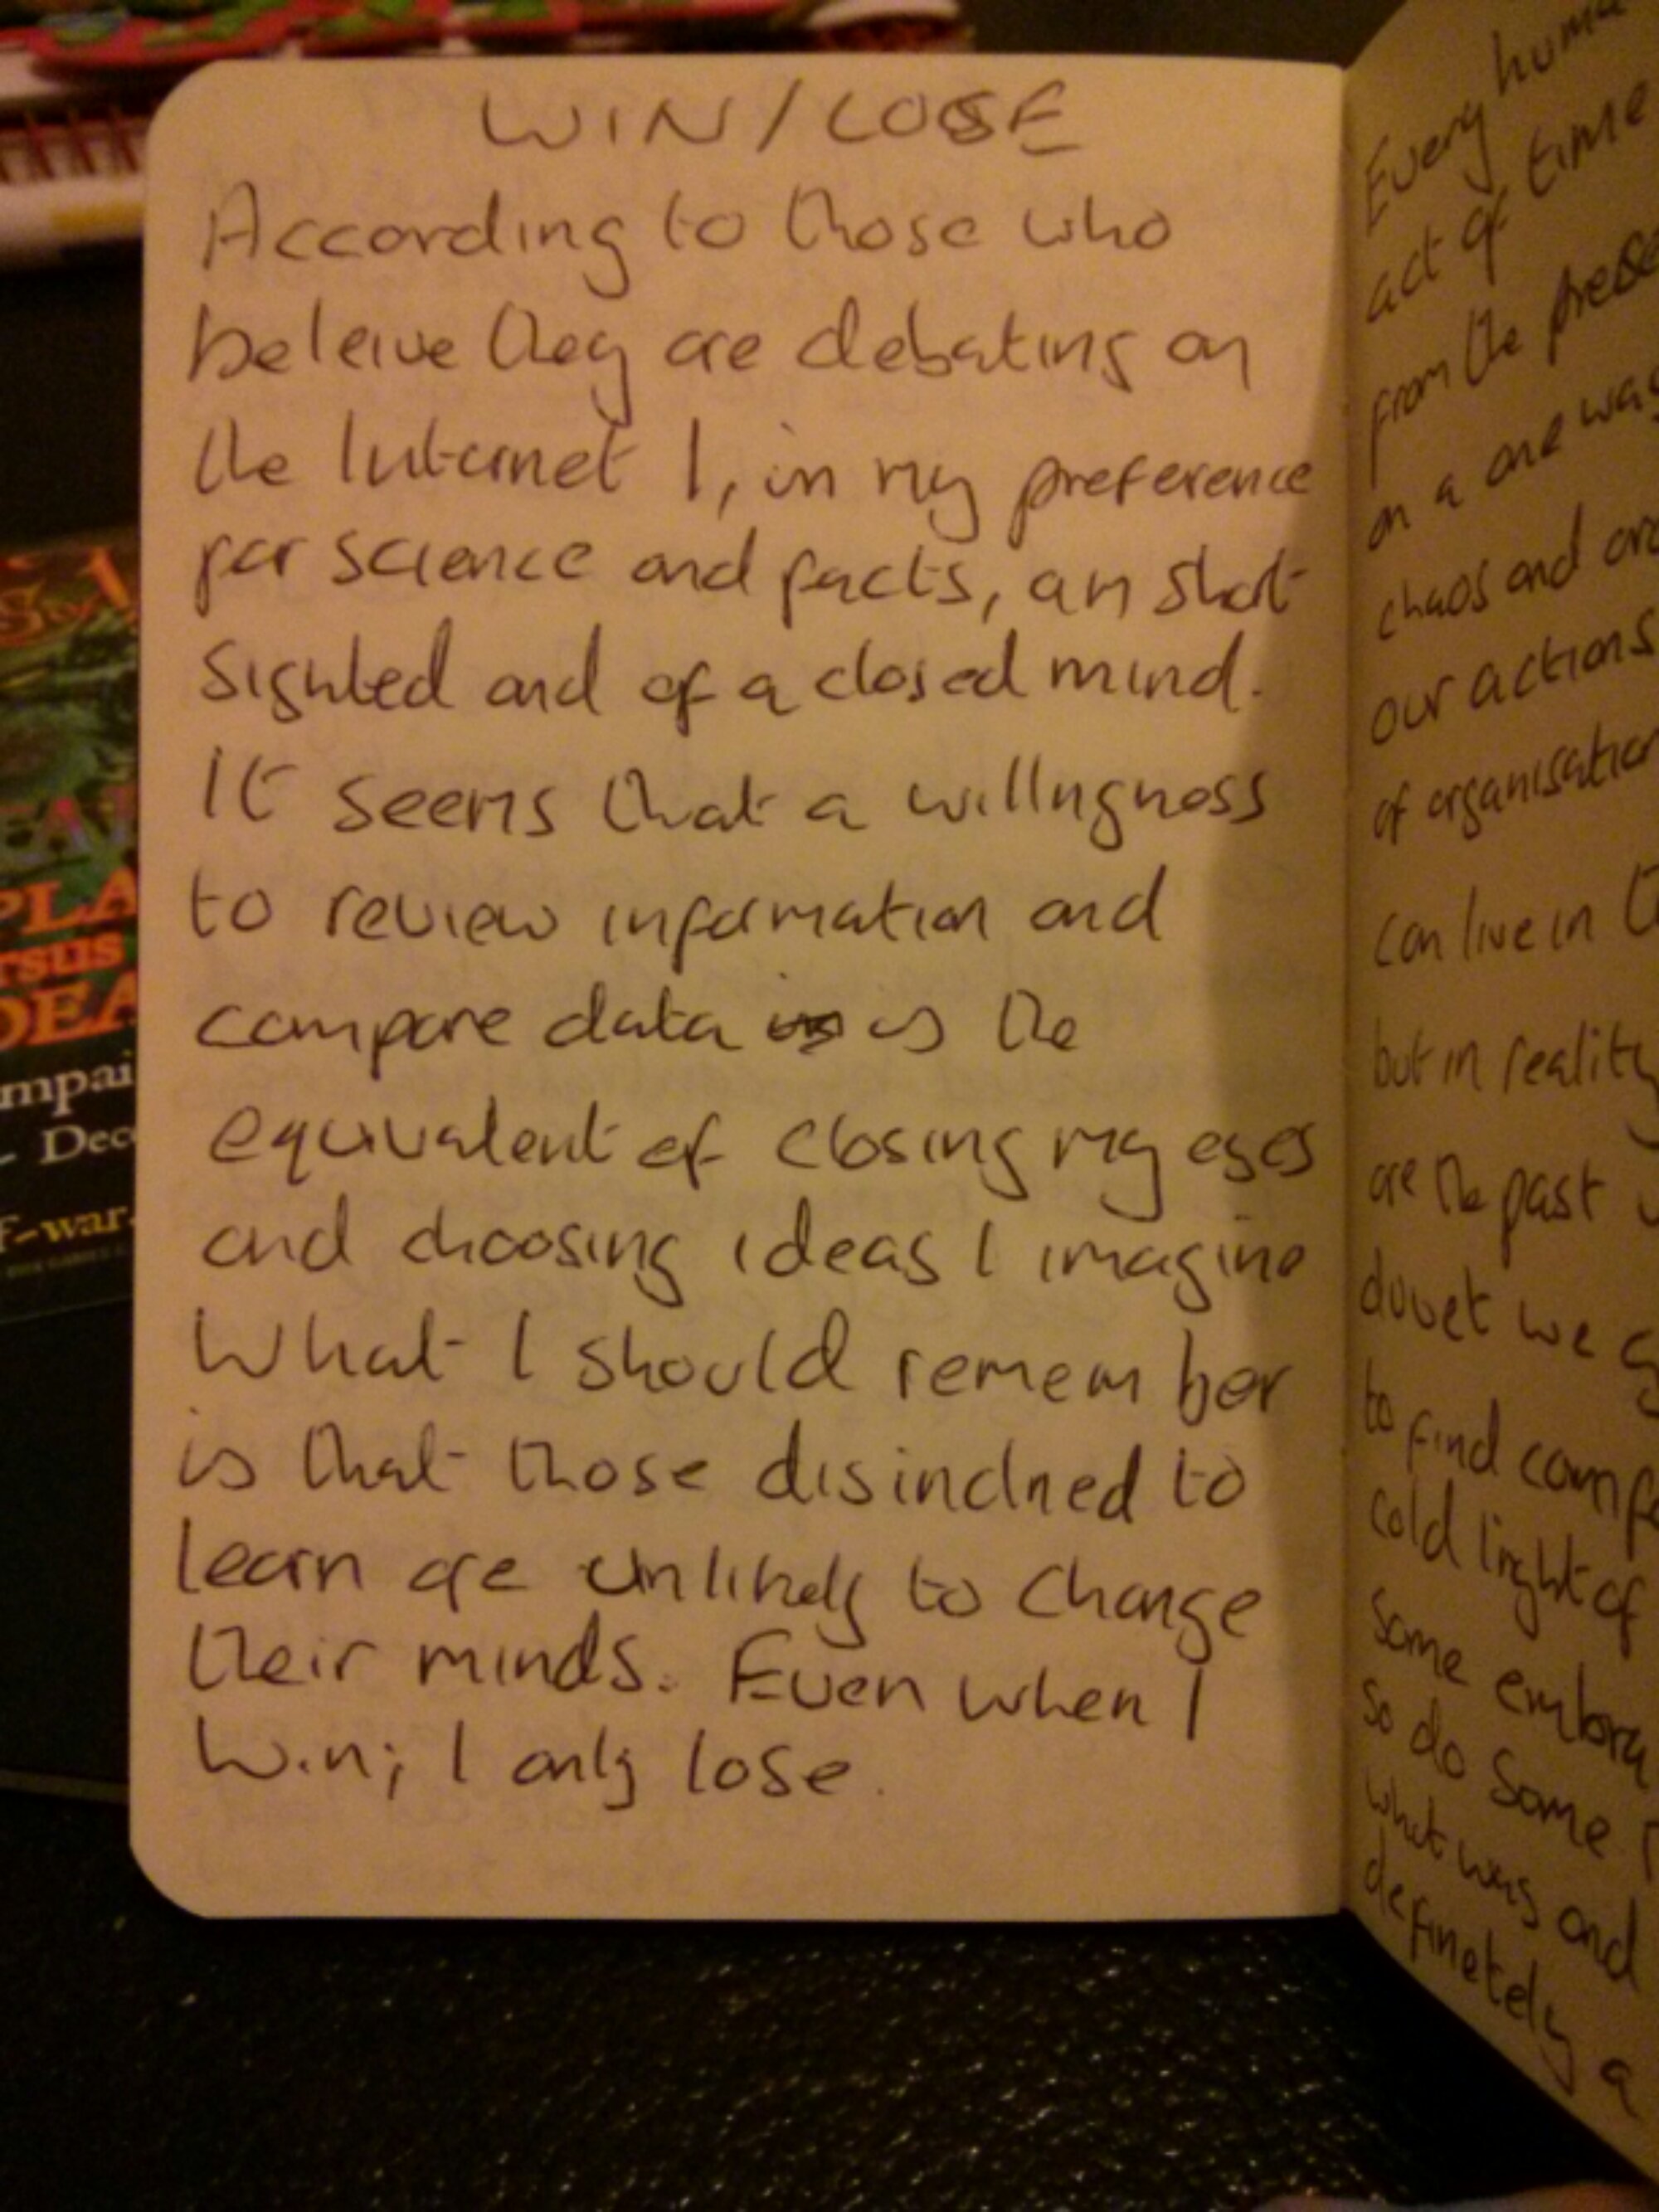 WIN/LOSE
According to those who
beleive they are debating on
the Internet I, in my preference
for science and facts, am short
sighted and of a closed mind.
It seems that a willingness
to review information and
compare data is the
equivalent of closing my eyes
and choosing ideas I imagine
What I should remember
is that those disinclined to
learn are unlikely to change
their minds. Even when I
win; I only lose.
Every huma
act of time
from the prese
on a one way
chaos and
our actions
of organisation
can live in
but in reality
are the past
duvet we
to find comfo
cold light of
some embra
so do some
what was and
definetely a
PLA
rsus
DEA
mpai
- Dec
f-war